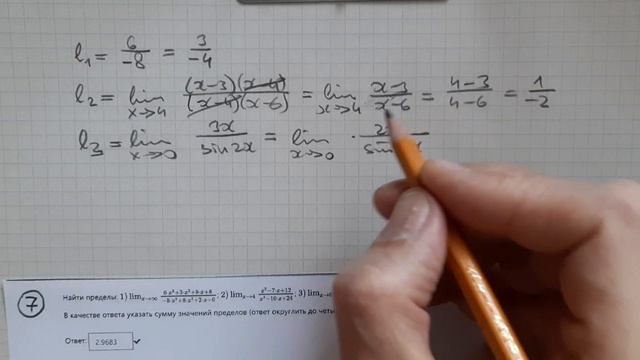 l₁ = 6/-8 = 3/-4
l₂ = lim x→4 (x-3)(x-4)/(x-4)(x-6) = lim x→4 x-3/x-6 = 4-3/4-6 = 1/-2
l₃ = lim x→0 3x/sin2x = lim x→0 · 2 sin
7 Найти пределы: 1) lim x→∞ ; 2) lim x→4 x²-7·x+12/x²-10·x+24; 3) lim
В качестве ответа указать сумму значений пределов (ответ округлить до
Ответ: 2.9683